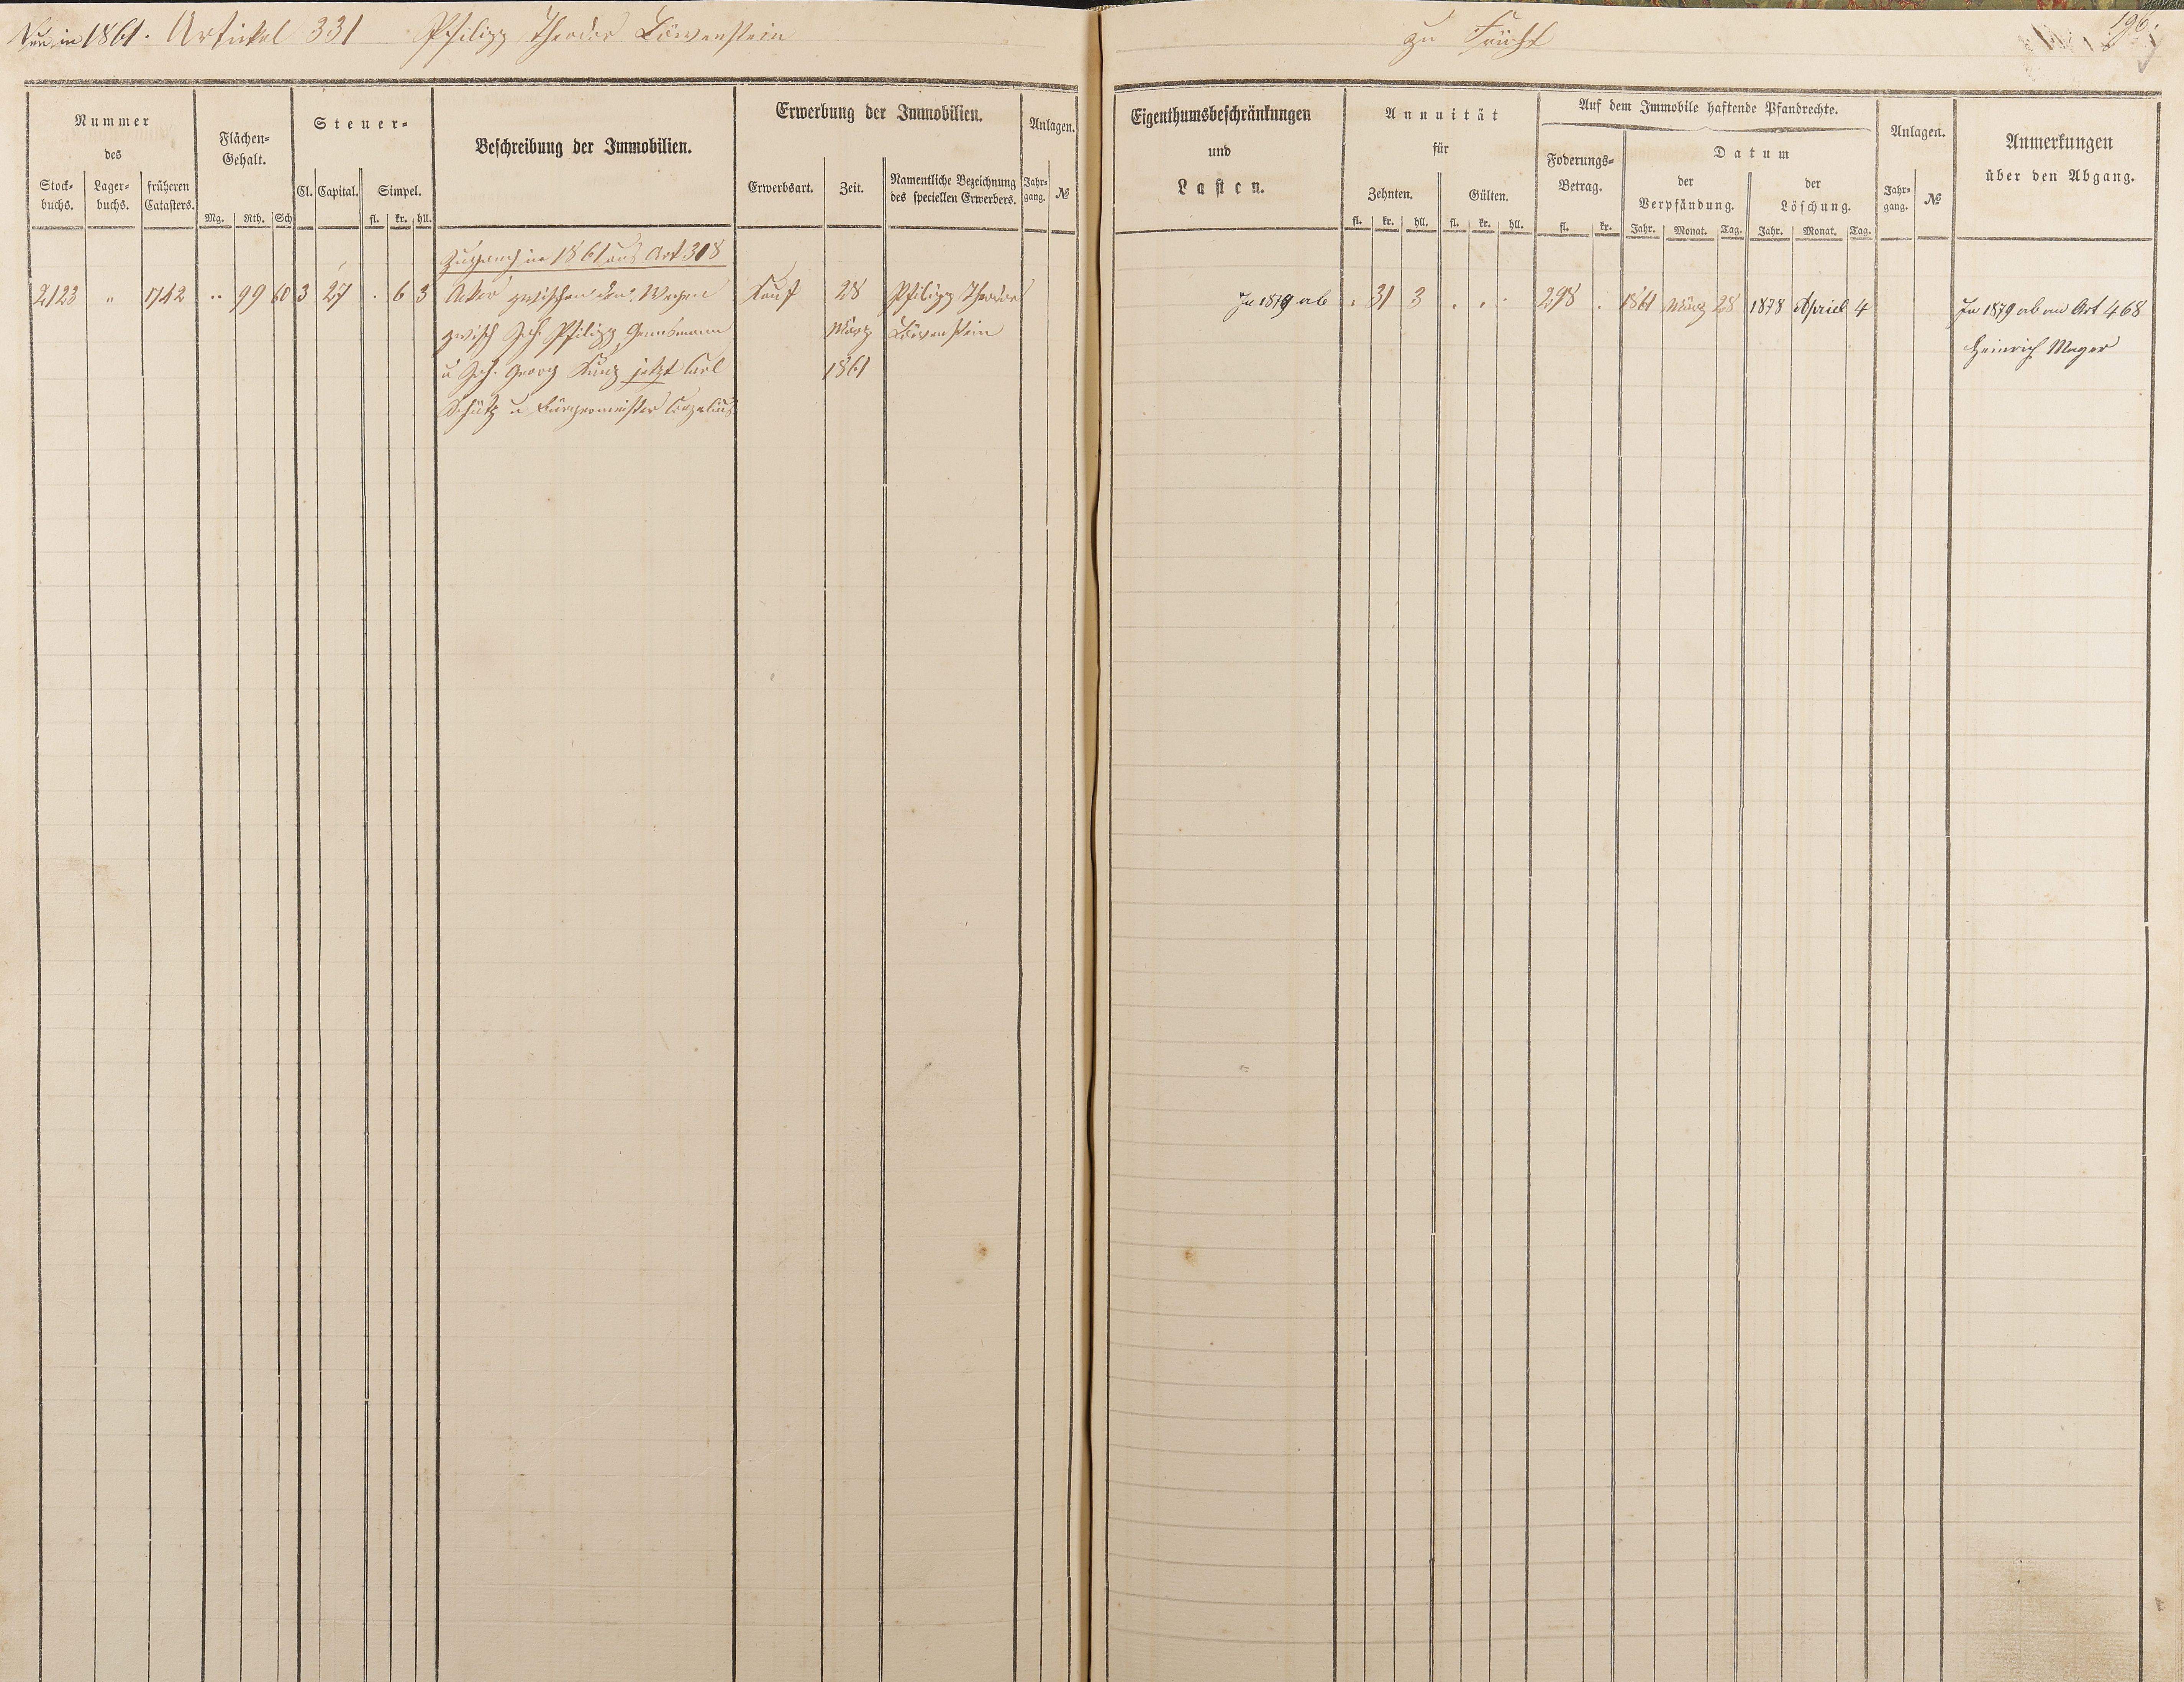 Neu in 1861. Artikel 331 Philipp Theodor Löwenstein
zu Frücht
196.
Nummer
des
Stock-
buchs.
Lager-
buchs.
früheren
Catasters.
Flächen-
Gehalt.
Mg. Rth. Sch
Steuer-
Cl. Capital. Simpel.
fl. kr. hll.
Beschreibung der Immobilien.
Erwerbung der Immobilien.
Erwerbsart. Zeit.
Namentliche Bezeichnung
des speciellen Erwerbers.
Anlagen.
Jahr-
gang.
№
Eigenthumsbeschränkungen
und
Lasten.
Annuität
für
Zehnten. Gülten.
fl. kr. hll. fl. kr. hll.
Auf dem Immobile haftende Pfandrechte.
Foderungs-
Betrag.
fl. kr.
Datum
der
Verpfändung.
Jahr. Monat. Tag.
der
Löschung.
Jahr. Monat. Tag.
Anlagen.
Jahr-
gang.
№
Anmerkungen
über den Abgang.
Zugang in 1861 aus Art 318
2123 " 1742 .. 99 60 3 27 . 6 3 Acker zwischen den Wegen Kauf 28 Philipp Theodor
zwisch Joh. Philipp März Löwenstein
u Joh. Georg Kunz jetzt Carl 1861
Schütz u Bürgermeister
In 1879 ab . 31 3 . . . 298 . 1861 März 28 1878 Apriel 4 In 1879 ab an Art 468
Heinrich Mayer